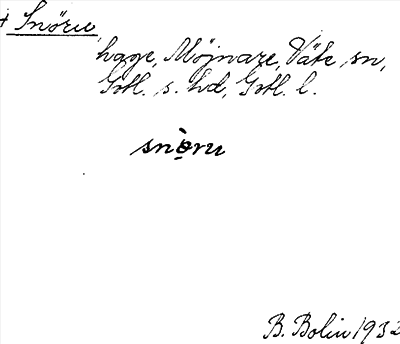 + Snöru,
hage, Möjnare, Väte sn,
Gotl. s. hd, Gotl. l.
snò̤ru
B. Bolin 1932